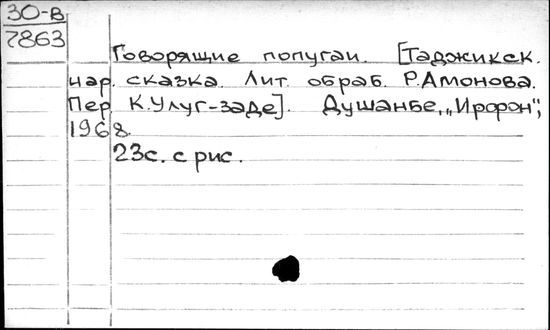 30-В
7863
Говорящие попугаи. [Таджикск.
нар. сказка. Лит. обраб. Р.Амонова.
Пер К.Улуг-заде]. Душанбе, „Ирфон",
1968.
23с. с рис.